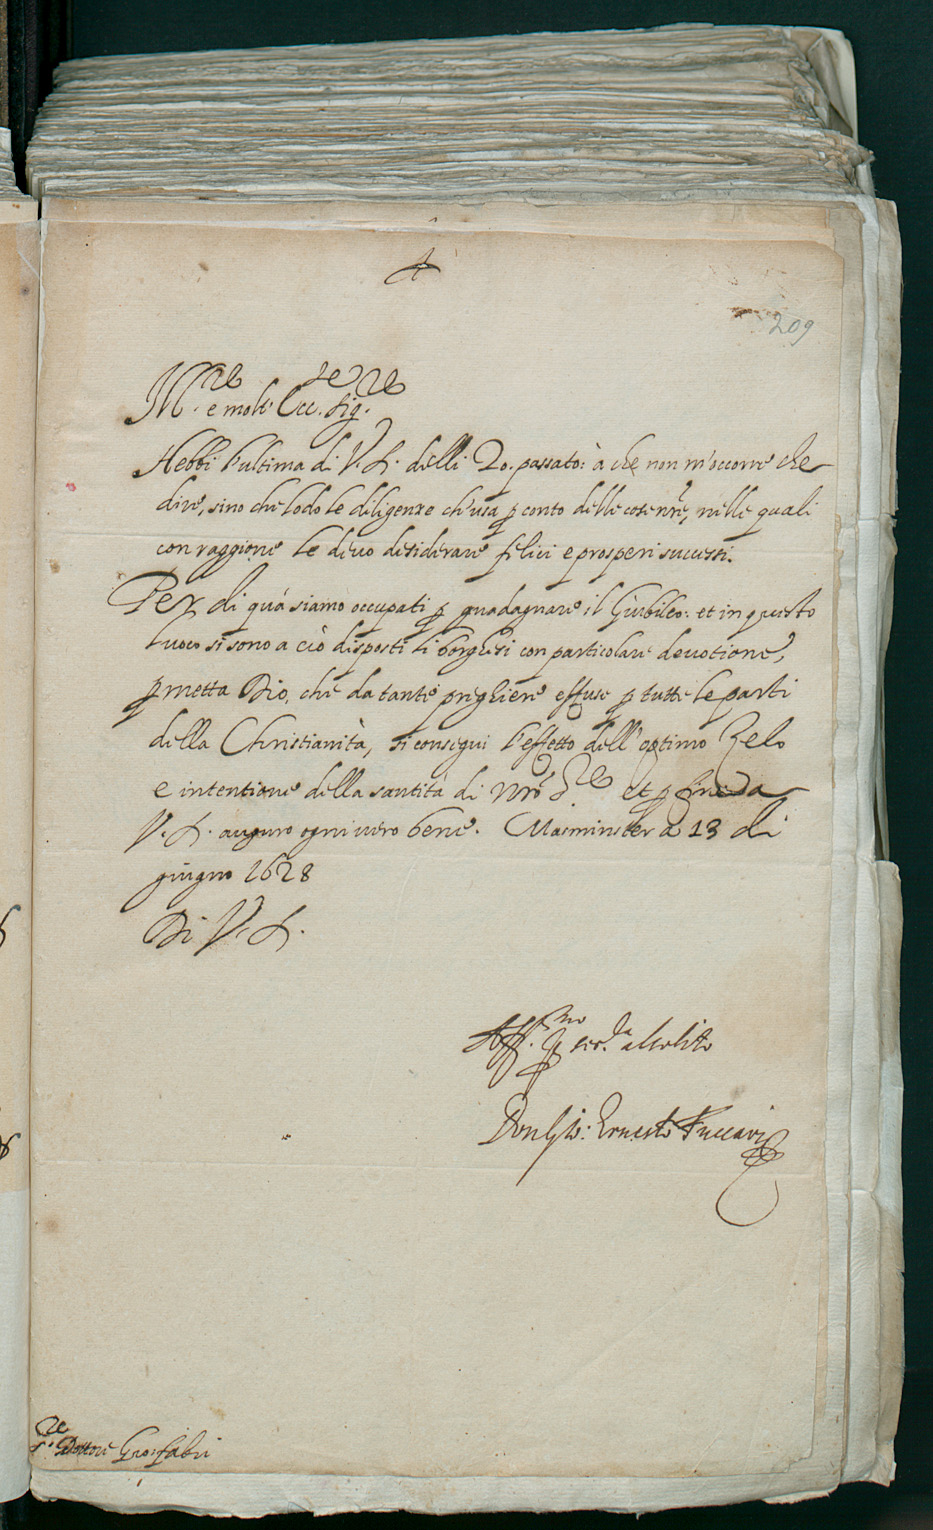 209
M.re e molt' Ecc.te Sig.re
Hebbi l'ultima di V. S. delli 20. passato: à che non m'occorre che
dire, sino che lodo le diligenze ch'usa p conto delle cose nre, nelle quali
con raggione le devo desiderare felici e prosperi successi.
Per di quà siamo occupati p guadagnare il Giubileo: et in questo
luoco si sono a ciò disposti li borghesi con particolare devotione,
pmetta Dio, che da tante preghiere effuse p tutte le parti
della Christianità, si consegui l'effetto dell'optimo Zelo
e intentione della santità di nro S.re et p fine da
V. S. auguro ogni vero bene. Masminster à 13 di
giugno 1628
Di V. S.
Aff.mo p ser.la al solito
Don Gio: Ernesto
S.re Dottore Gio: fabri